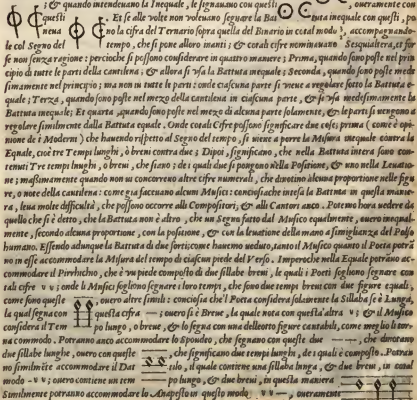 ; & quando intendeuano la Inequale, le segnauano con questi oueramente con
questi Et se alle volte non voleuano segnare la Battuta inequale con questi, po
neua no la cifra del Ternario sopra quella del Binario in cotal modo , accompagnando-
le col Segno del tempo, che si pone allora inanti; & cotali cifre nominauano Sesqualtera, et fu
se non senza ragione: percioche si possono considerare in quattro maniere; Prima, quando sono poste nel prin
cipio di tutte le parti della cantilena, & allora si vsa la Battuta inequale; Seconda, quando sono poste medi
simamente nel principio; ma non in tutte le parti: onde ciascuna parte si viene a regolare sotto la Battuta e-
quale; Terza, quando sono poste nel mezo della cantilena in ciascuna parte, & si vsa medesimamente la
Battuta inequale; Et quarta, quando sono poste nel mezo di alcuna parte solamente, & le parti si vengono a
regolare similmente dalla Battuta equale. Onde cotali Cifre possono significare due cose; prima (come è opi-
nione de i Moderni) che hauendo rispetto al Segno del tempo, si viene a porre la Misura inequale contra la
Equale, cioè tre Tempi lunghi, ò breui contra due; Dipoi, significano, che nella Battuta intera sono con-
tenuti Tre tempi lunghi, ò breui, che siano; de i quali due si pongono nella Positione, & vno nella Leuatio-
ne; massimamente quando non vi concorreno altre cifre numerali, che dinotino alcuna proportione nelle figu
re, ò note della cantilena: come già faceuano alcuni Musici: conciosiache intesa la Battuta in questa manie
ra, leua molte difficultà, che possono occorre alli Compositori, & alli Cantori anco. Potemo hora vedere da
quello che si è detto, che la Battuta non è altro, che vn Segno fatto dal Musico equalmente, ouero inequal-
mente, secondo alcuna proportione, con la positione, & con la leuatione della mano a simiglianza del Polso
humano. Essendo adunque la Battuta di due sorti; come hauemo veduto, tanto il Musico quanto il Poeta potrà
no in esse accommodare la Misura del tempo di ciascun piede del Verso. Imperoche nella Equale potrãno ac-
commodare il Pirrhichio, che è vn piede composto di due sillabe breui, le quali i Poeti sogliono segnare con
tali cifre v v; onde li Musici sogliono segnare i loro tempi, che sono due tempi breui con due figure equali,
come sono queste ouero altre simili: conciosia che'l Poeta considera solamente la Sillaba se è Lunga,
la qual segna con questa cifra —; ouero si è Breue, la quale nota con questa altra v; & il Musico
considera il Tem po lungo, o breue, & lo segna con una delle otto figure cantabili, come meglio li tor-
na commodo. Potranno anco accommodare lo Spondeo, che segnano con queste due — —, che dinotano
due sillabe lunghe, ouero con queste , che significano due tempi lunghi, de i quali è composto. Potran
no similmẽte accommodare il Dat tilo, il quale contiene una sillaba lunga, & due breui, in cotal
modo - v v; ouero contiene un tem po lungo, & due breui, in questa maniera
Similmente potranno accommodare lo Anapesto in questo modo v v —, oueramente con